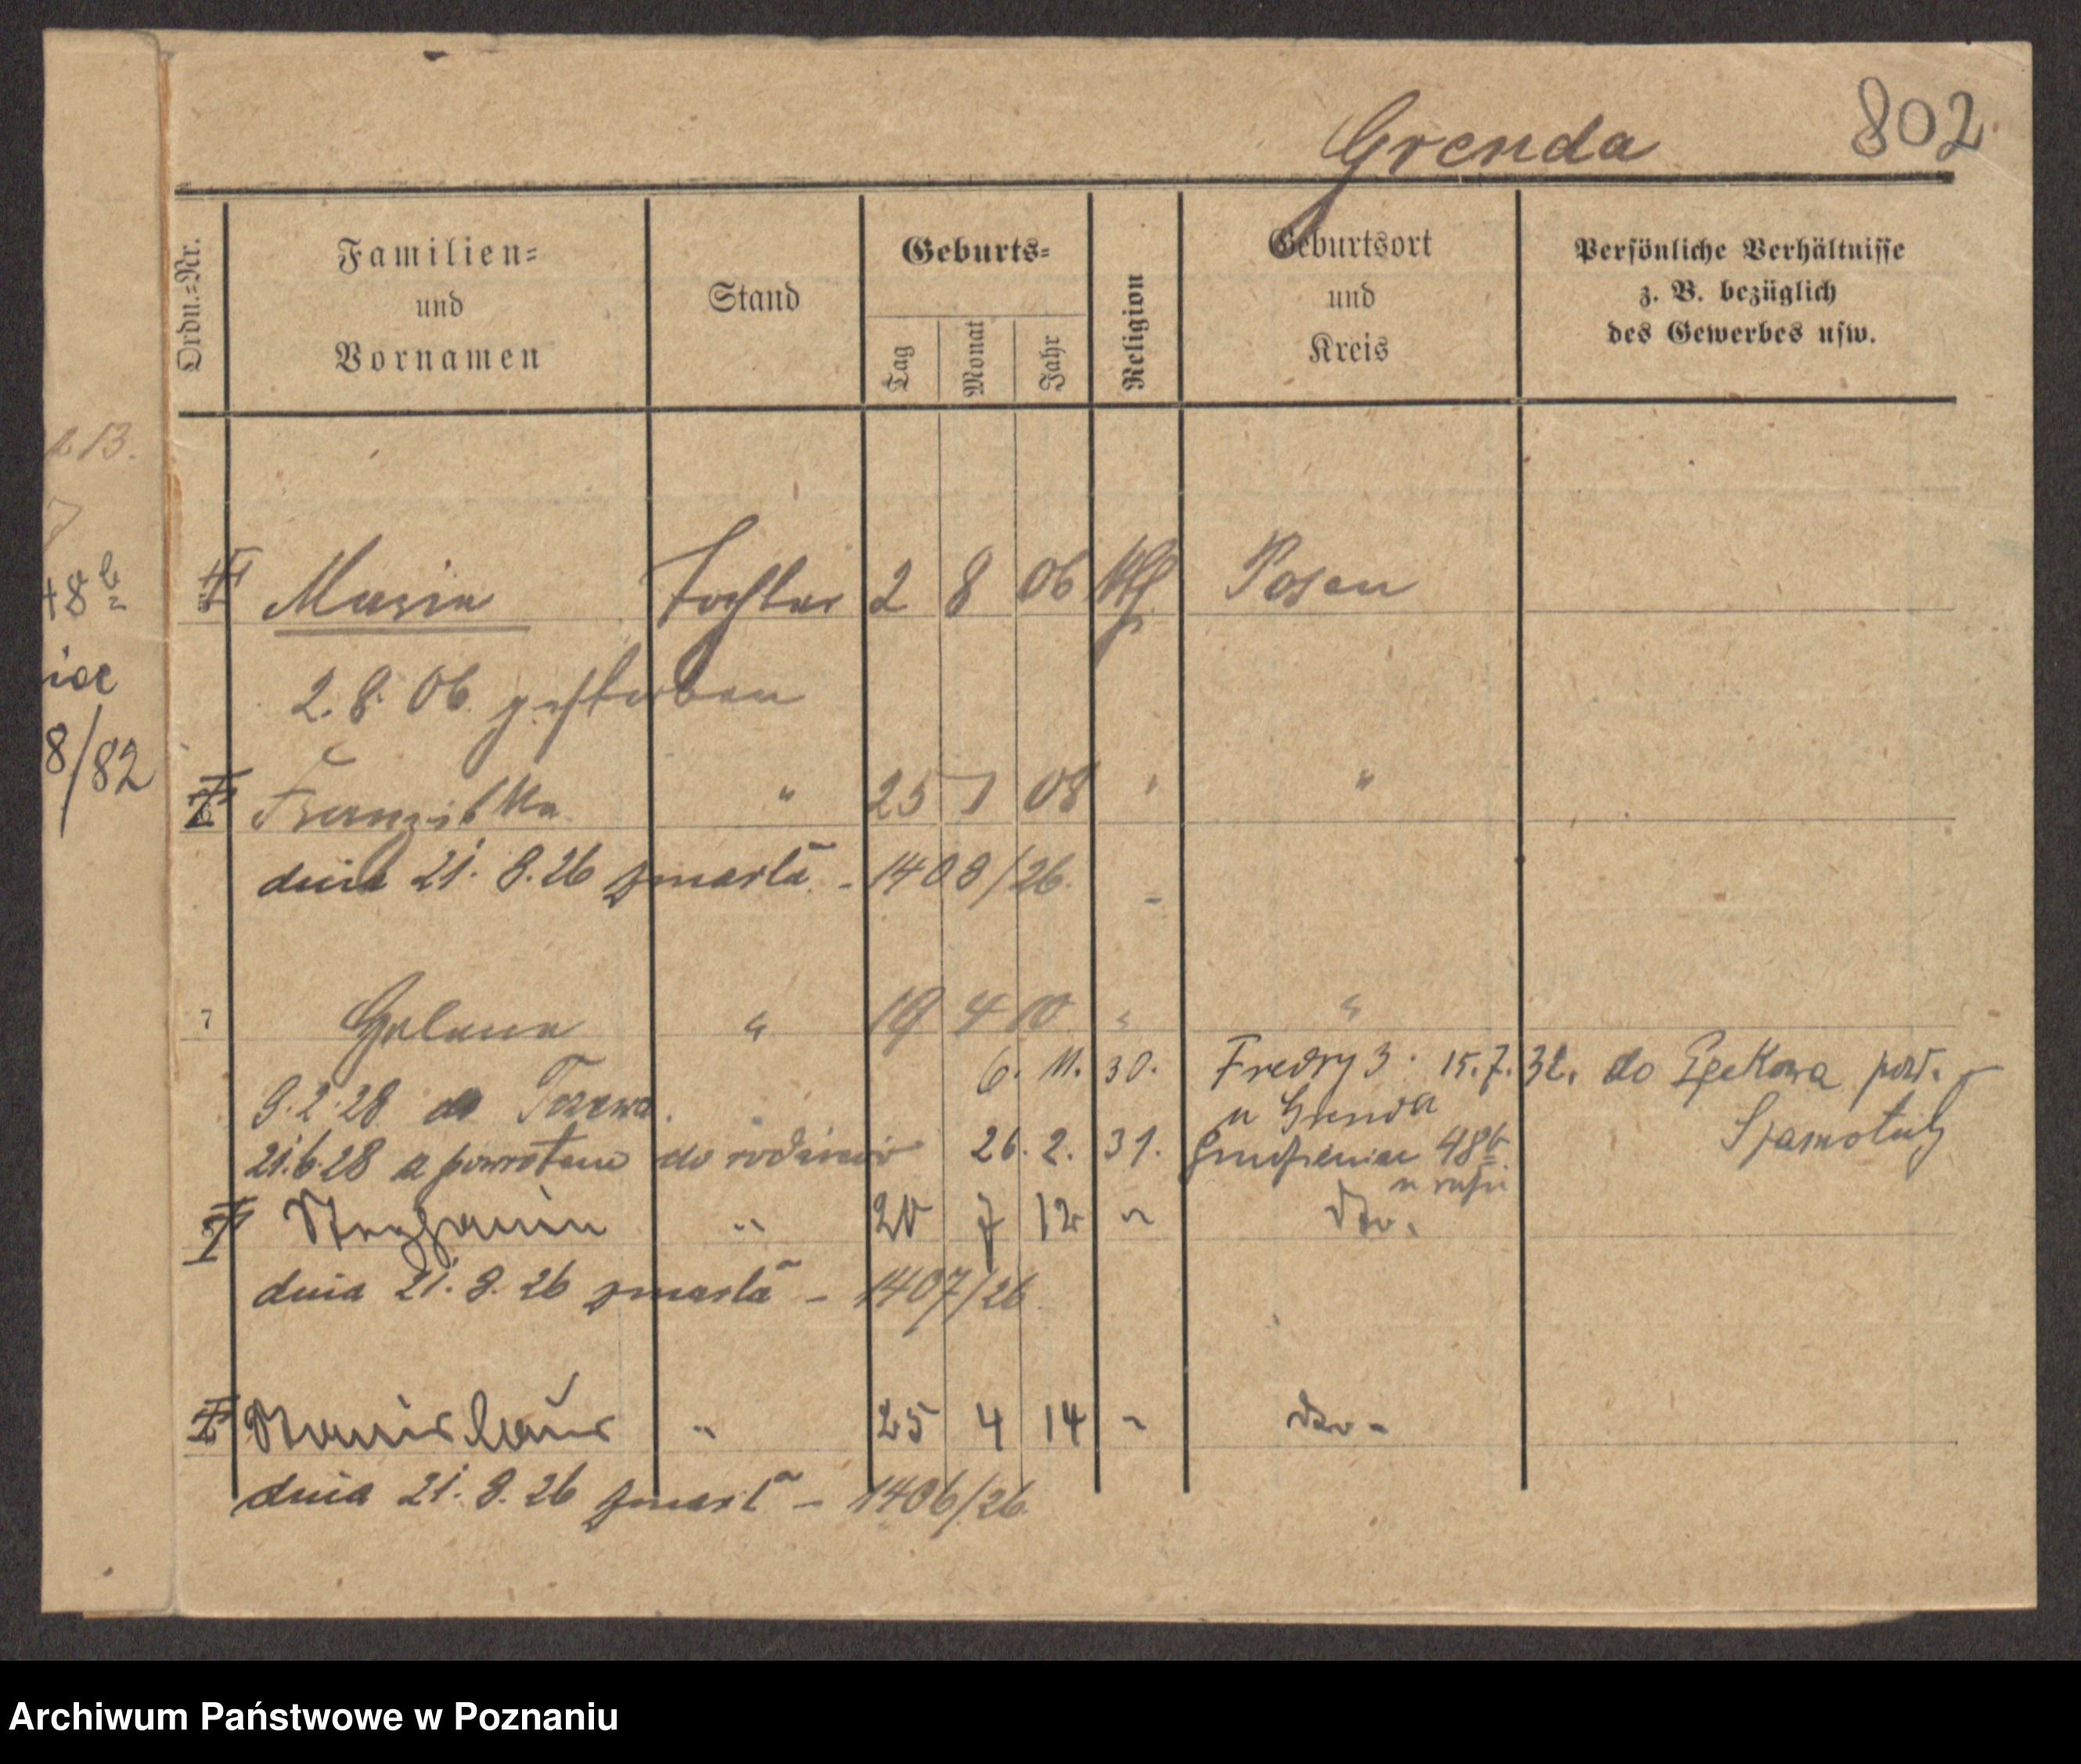 Grenda 802
Ordn.-Nr.
Familien-
und
Vornamen
Stand
Geburts-
Tag
Monat
Jahr
Religion
Geburtsort
und
Kreis
Persönliche Verhältnisse
z. B. bezüglich
des Gewerbes usw.
13.
48b
iae
8/82
Maria Tochter 2 8 06 kth. Posen
2.8.06 gestorben
Franziska " 25 1 08 " "
dnia 21.8.26 zmarła - 1408/26.
7 Helene " 19 4 10 " "
6. 11. 30. Fredry 3. 15.7.32. do pow.
9.2.28 do Tczewa. u Grenda Szamotuły
21.6.28 z powrotem do rodziców 26. 2. 31. 48b
Stephanie " 20 7 12 " dto.
dnia 21.8.26 zmarła - 1407/26.
Stanislaus " 25 4 14 " dto -
dnia 21.8.26 zmarł - 1406/26.
Archiwum Państwowe w Poznaniu